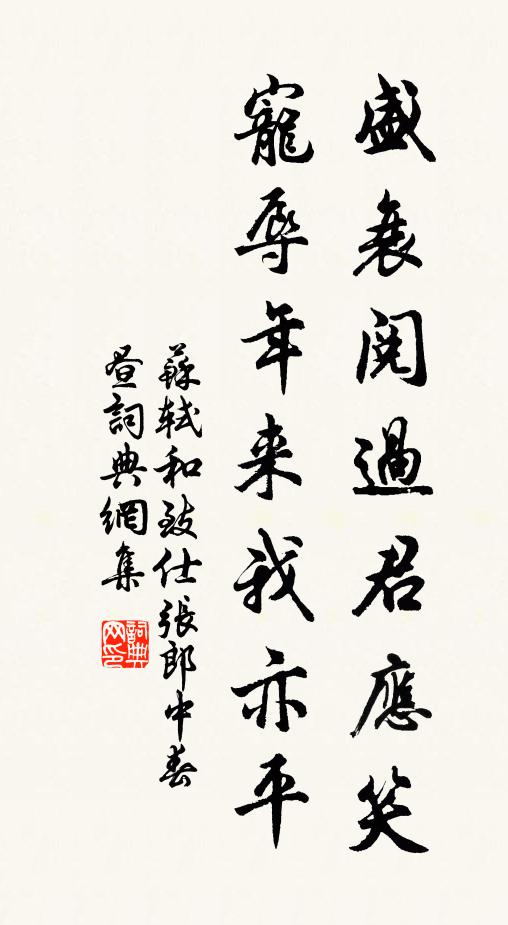 盛衰閱過君應笑
寵辱年来我亦平
蘇軾和致仕張郎中春
晝詞典網集
詞典
网印